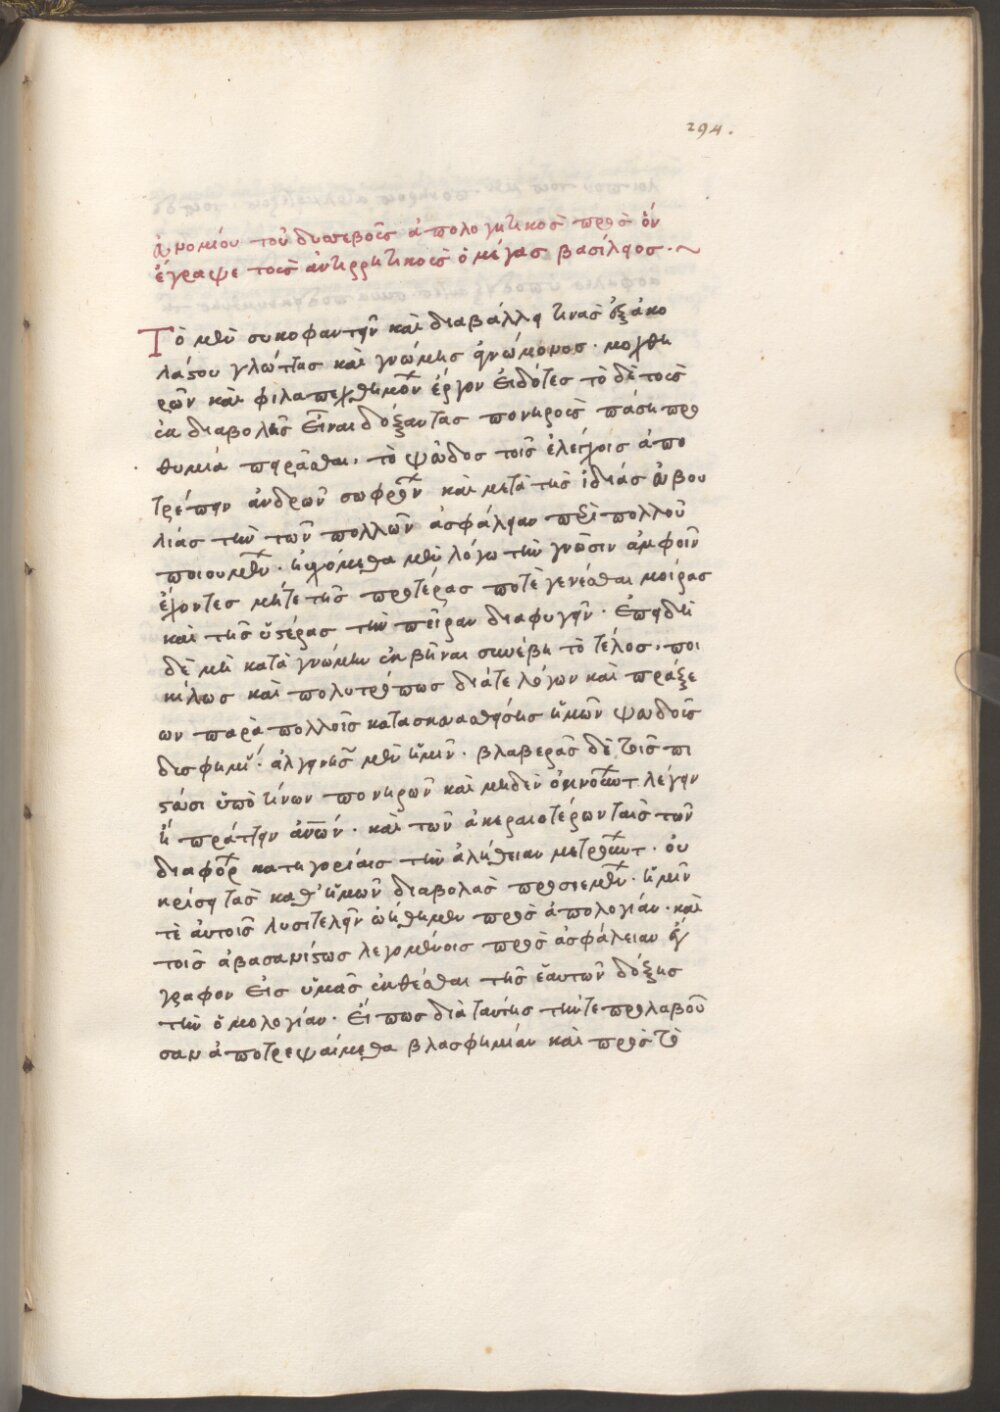 294.
Εὐνομίου τοῦ δυσσεβοῦς ἀπολογητικὸς πρὸς ὃν
ἔγραψε τοὺς ἀντιρρητικοὺς ὁ μέγας βασίλειος·~
Τὸ μὲν συκοφαντεῖν καὶ διαβάλλειν τινὰς ἐξ ἀκο
λάστου γλώττης καὶ γνώμης ἀγνώμονος· μοχθη
ρῶν καὶ φιλαπεχθημόν ἔργον εἰδότες τὸ δὲ τοὺς
ἐκ διαβολῆς εἶναι δόξαντας πονηροὺς πάσῃ προ
θυμίᾳ πειρᾶσθαι· τὸ ψεῦδος τοῖς ἐλέγχοις ἀπο
τρέπειν ἀνδρῶν σωφρόν καὶ μετὰ τῆς ἰδίας εὐβου
λίας τὴν τῶν πολλῶν ἀσφάλειαν περὶ πολλοῦ
ποιουμέν· εὐχόμεθα μὲν λόγω τὴν γνῶσιν ἀμφοῖν
ἔχοντες μήτε τῆς προτέρας ποτὲ γενέσθαι μοίρας
καὶ τῆς ὑστέρας τὴν πεῖραν διαφυγεῖν· ἐπειδὴ
δὲ μὴ κατὰ γνώμην ἐκβῆναι συνέβη τὸ τέλος· ποι
κίλως καὶ πολυτρόπως διά τε λόγων καὶ πράξε
ων παρὰ πολλοῖς κατασκευασθείσης ἡμῶν ψευδοῦς
δισφημί· ἀλγεινῆς μὲν ἡμῖν· βλαβερᾶς δὲ τοῖς πι
στεύσασι ὑπό τινων πονηρῶν καὶ μηδὲν ὀκνούντ λέγειν
ἢ πράττειν ἀνων· καὶ τῶν ἀκεραιοτέρων ταῖς τῶν
διαφόρ κατηγορίαις τὴν ἀλήθειαν μετρούντ· οὐ
κρίσει τὰς καθ' ἡμῶν διαβολὰς προσιεμέν· ἡμῖν
τὲ αὐτοῖς λυσιτελεῖν ᾠήθημεν πρὸς ἀπολογίαν· καὶ
τοῖς ἀβασανίστως λεγομένοις πρὸς ἀσφάλειαν ἔγ
γραφον εἰς ὑμᾶς ἐκθέσθαι τῆς ἑαυτῶν δόξης
τὴν ὁμολογίαν· εἴ πως διὰ ταύτης τήν τε προλαβοῦ
σαν ἀποτρεψαίμεθα βλασφημίαν καὶ πρὸς τὸ